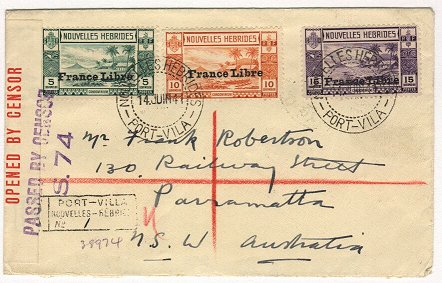 NOUVELLES HEBRIDES
France Libre
5 5
NOUVELLES HEBRIDES
France Libre
10 10
NOUVELLES HEBRIDES
France Libre
15 15
NOUVELLES HEBRIDES
14 JUIN 41
PORT-VILA
PORT-VILA
OPENED BY CENSOR
PASSED BY CENSOR
S. 74
Mr Frank Robertson
130, Railway Street
Parramatta
N.S.W Australia
PORT-VILLA
NOUVELLES-HEBRIDES
No 1